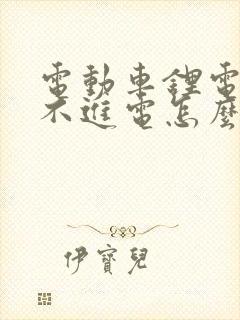 電動車鋰電
不進電怎麼
伊寶兒